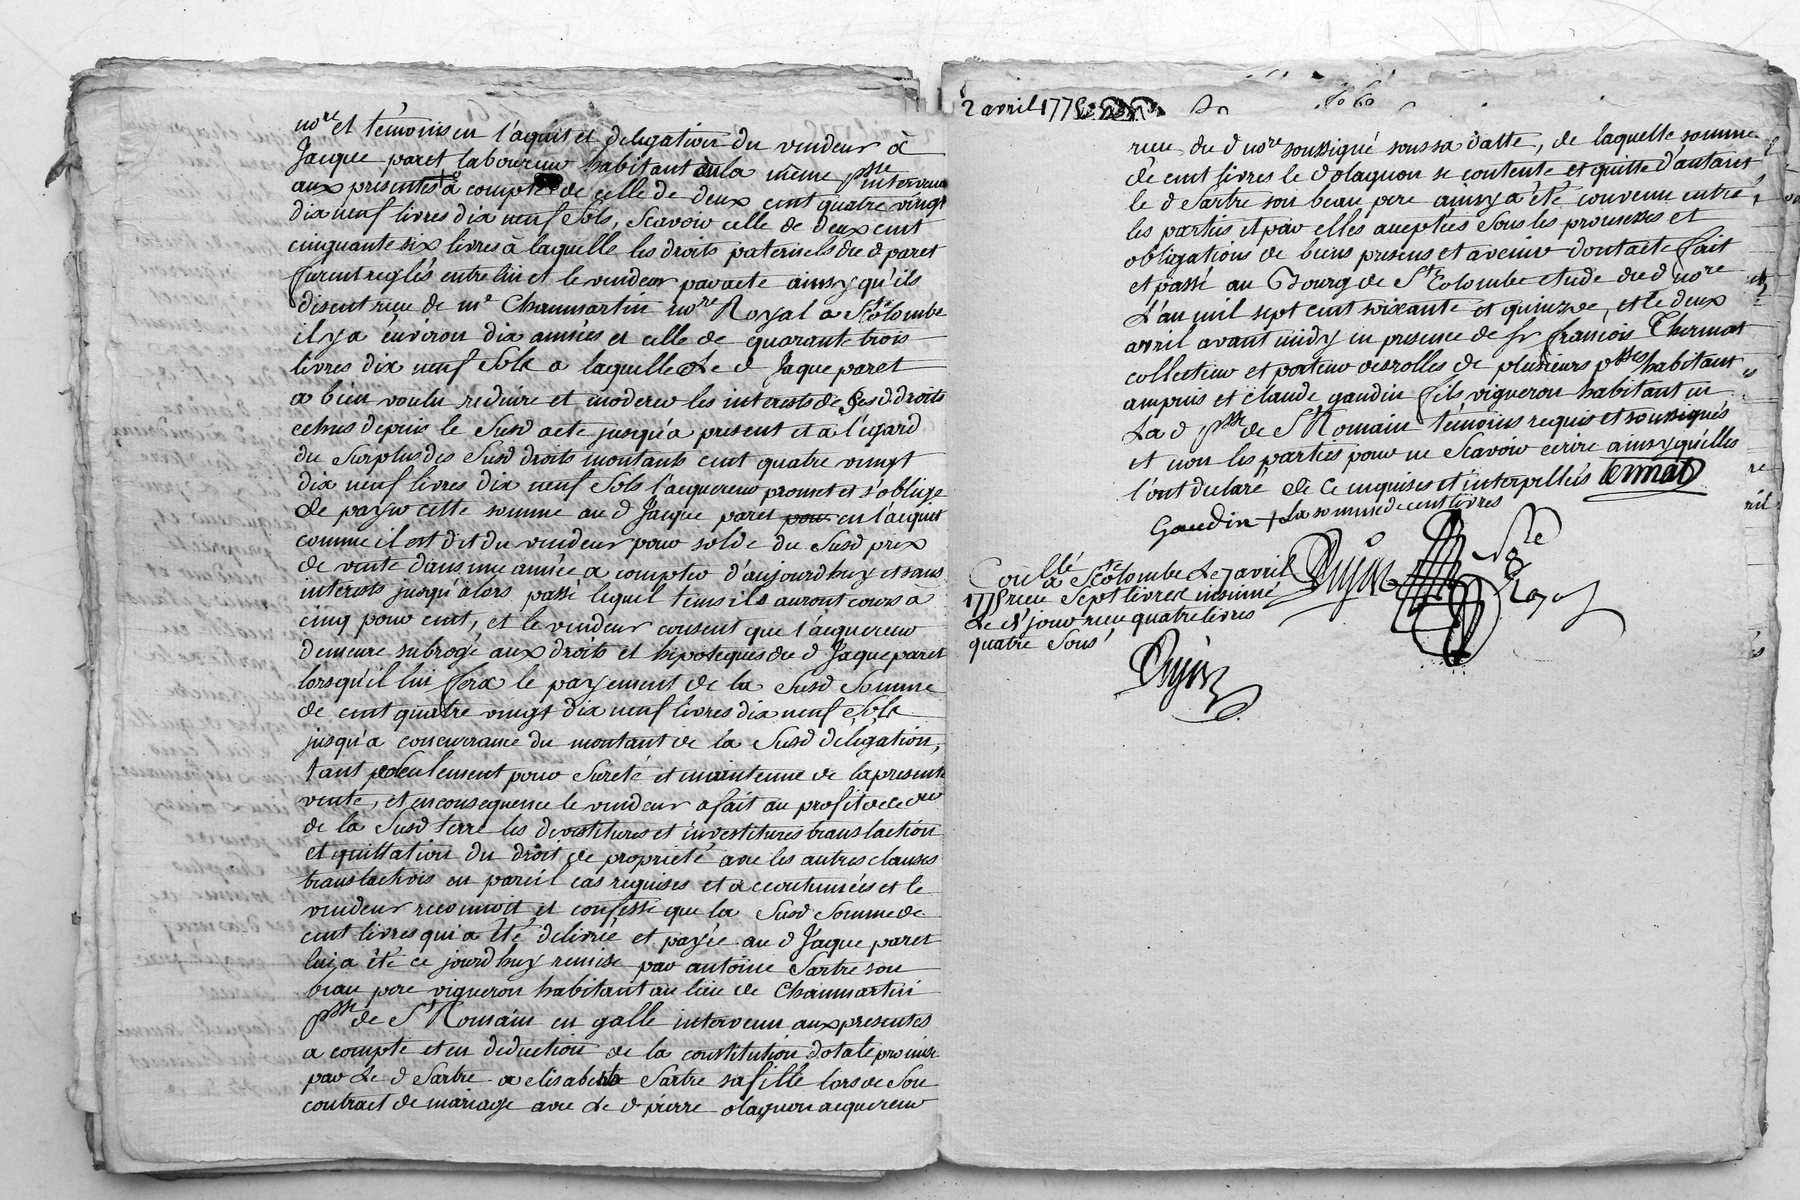 no.re et témoins en l'aquit et delegation du vendeur à
Jacque paret laboureur habitant en la même p.sse intervenu
aux presentes + à compte de celle de deux cent quatre vingt
dix neuf livres dix neuf sols, Scavoir celle de deux cent
cinquante six livres à laquelle les droits paternels du d paret
furent reglés entre lui et le vendeur par acte ainsy qu'ils
disent recu de m.e Chaumartin no.re Royal a S.te Colombe
il y a environ dix années et celle de quarante trois
livres dix neuf sols a laquelle Le d Jaque paret
a bien voulu reduire et moderer les interests de ses d droits
echus depuis le Susd acte jusqu'a present et a l'egard
du Surplus des Susd droits montants cent quatre vingt
dix neuf livres dix neuf Sols l'aquereur promet et s'oblige
de payer cette somme au d Jacque paret pour en l'acquit
comme il est dit du vendeur pour solde du Susd prix
de vente dans une année a compter d'aujourdhuy et sans
interests jusqu'alors passé lequel tems ils auront cours a
cinq pour cent, et le vendeur consent que l'acquereur
demeure subrogé aux droits et hipoteques du d Jaque paret
lorsqu'il lui fera le payement de la Susd Somme
de cent quatre vingt dix neuf livres dix neuf Sols
jusqu'a concurrance du montant de la Susd délégation,
tant seulement pour Sureté et maintenue de la presente
vente, et en consequence le vendeur a fait au profit de l'ac.eur
de la Susd terre les devestitures et investitures translaction
et quittation du droit de proprieté avec les autres clauses
translactives en pareil cas requises et accoutumées et le
vendeur reconnoit et confesse que la Susd Somme de
cent livres qui a été delivrée et payée au d Jaque paret
lui a été ce jourdhuy remise par antoine Sartre son
beau pere vigneron habitant au lieu de Chaumartin
p.sse de S.t Romain en galle intervenu aux presentes
a compte et en deduction de la constitution dotale promise
par Le d Sartre a elisabeth Sartre sa fille lors de Son
contract de mariage avec Le d pierre olagnon acquereur
2 avril 1775
recu du d no.re soussigné sous sa datte, de laquelle somme
de cent livres le d olagnon se contente et quitte d'autant
le d Sartre son beau pere ainsy a été convenu entre
les parties et par elles acceptées Sous les promesses et
obligations de biens presens et avenir dont acte fait
et passé au Bourg de S.te Colombe etude du d no.re
L'an mil sept cent soixante et quinze, et le deux
avril avant midy en presence de Sr françois Thermat
collecteur et porteur des rolles de plusieurs p.sses habitant
ampuis et claude gaudin fils vigneron habitant en
La d p.sse de S.t Romain témoins requis et soussignés
et non les parties pour ne Scavoir ecrire ainsy qu'elles
l'ont declaré de ce enquises et interpellés
Gaudin + La somme de cent livres
Coll.lé a S.te Colombe Le 7 avril
1775 recu Sept livres insinué
Le d jour recu quatre livres
quatre Sous